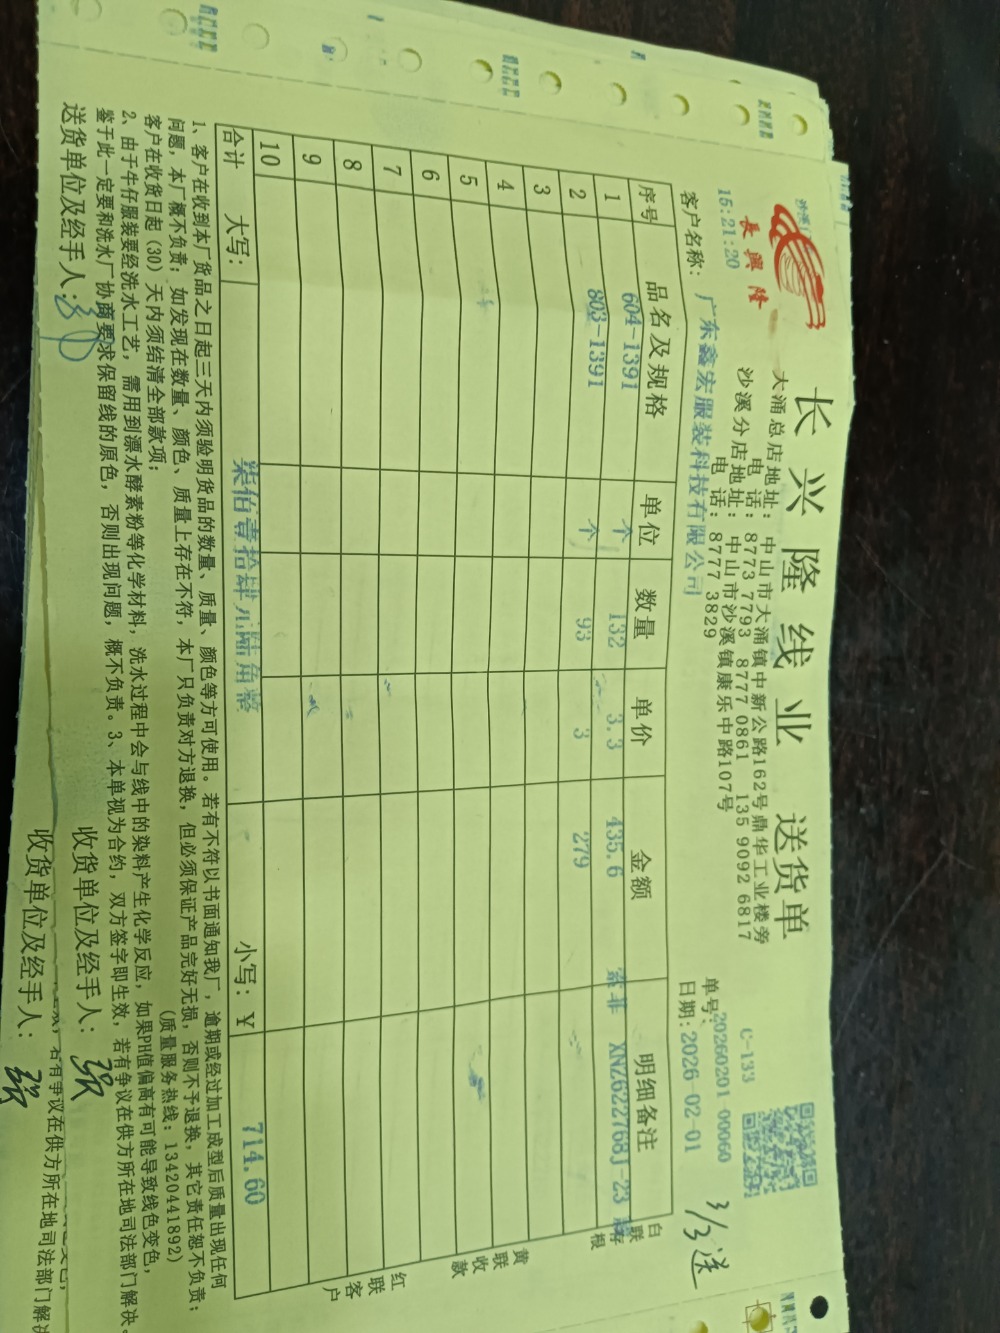 长兴隆线业 送货单
長興隆
大涌总店地址: 中山市大涌镇中新公路162号鼎华工业楼旁
电 话: 8773 7793 8777 0861 135 9092 6817
沙溪分店地址: 中山市沙溪镇康乐中路107号
电 话: 8777 3829
C-133
15:21:20
单号:20260201-00060
客户名称: 广东鑫宏服装科技有限公司
日期:2026-02-01
3/3送
序号 品名及规格 单位 数量 单价 金额 明细备注
1 604-1391 个 132 3.3 435.6 XNZ622768J-23
2 803-1391 个 93 3 279
3
4
5
6
7
8
9
10
合计 大写: 柒佰壹拾肆元陆角整 小写: ¥ 714.60
白联存根
黄联收款
红联客户
1、客户在收到本厂货品之日起三天内须验明货品的数量、质量、颜色等方可使用。若有不符以书面通知我厂,逾期或经过加工成型后质量出现任何
问题,本厂概不负责;如发现在数量、颜色、质量上存在不符,本厂只负责对方退换,但必须保证产品完好无损,否则不予退换,其它责任恕不负责;
客户在收货日起(30)天内须结清全部款项; (质量服务热线:13420441892)
2、由于牛仔服装要经洗水工艺,需用到漂水酵素粉等化学材料,洗水过程中会与线中的染料产生化学反应,如果PH值偏高有可能导致线色变色,
鉴于此一定要和洗水厂协商要求保留线的原色,否则出现问题,概不负责。3、本单视为合约,双方签字即生效,若有争议在供方所在地司法部门解决。
送货单位及经手人: 收货单位及经手人: 强
若有争议在供方所在地司法部门解决
收货单位及经手人: 强